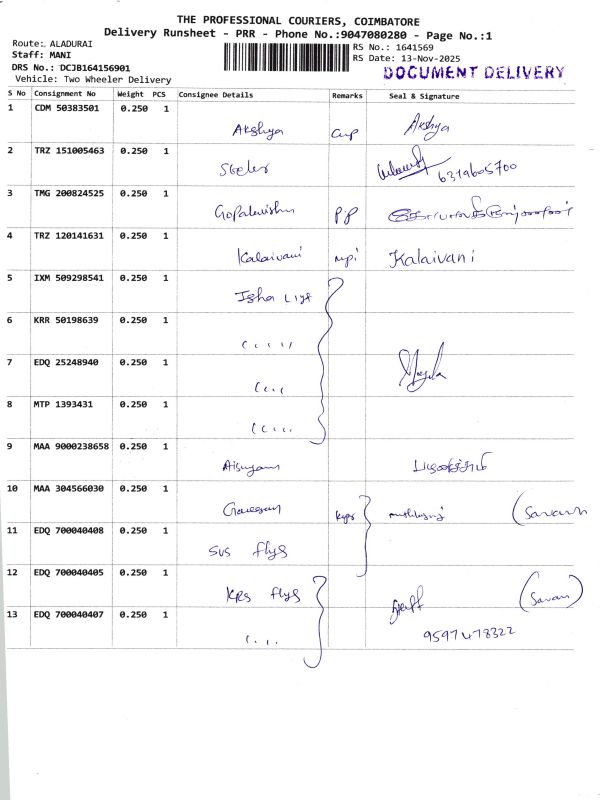 THE PROFESSIONAL COURIERS, COIMBATORE
Delivery Runsheet - PRR - Phone No.:9047080280 - Page No.:1
Route: ALADURAI
Staff: MANI
DRS No.: DCJB164156901
Vehicle: Two Wheeler Delivery
RS No.: 1641569
RS Date: 13-Nov-2025
DOCUMENT DELIVERY
S No Consignment No Weight PCS Consignee Details Remarks Seal & Signature
1 CDM 50383501 0.250 1 Akshya Akshya
2 TRZ 151005463 0.250 1 6319605700
3 TMG 200824525 0.250 1
4 TRZ 120141631 0.250 1 Kalaivani Kalaivani
5 IXM 509298541 0.250 1 Isha
6 KRR 50198639 0.250 1
7 EDQ 25248940 0.250 1
8 MTP 1393431 0.250 1
9 MAA 9000238658 0.250 1
10 MAA 304566030 0.250 1
11 EDQ 700040408 0.250 1 SVS
12 EDQ 700040405 0.250 1 KRS
13 EDQ 700040407 0.250 1 9597478322